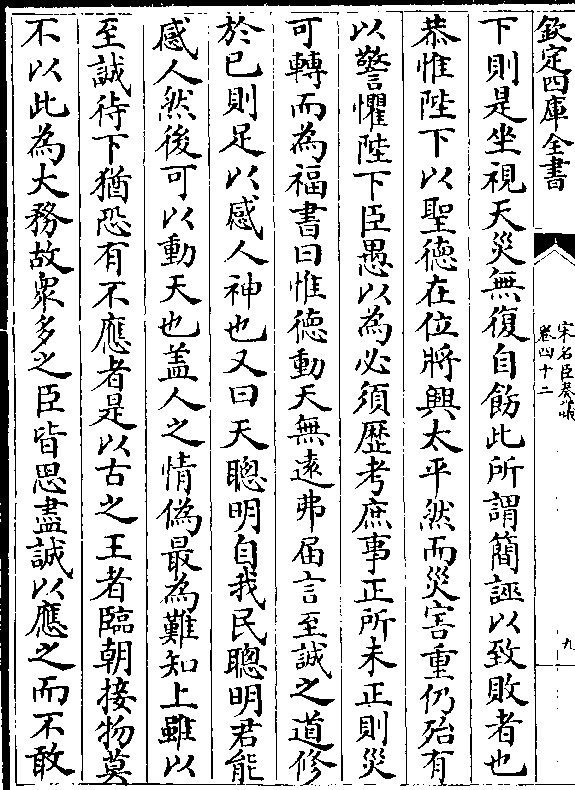 欽定四庫全書
宋名臣奏議
卷四十二
九
下則是坐視天災無復自飭此所謂簡誣以致敗者也
恭惟陛下以聖德在位將興太平然而災害重仍殆有
以警懼陛下臣愚以為必須歴考庶事正所未正則災
可轉而為福書曰惟德動天無逺弗届言至誠之道修
於已則足以感人神也又曰天聰明自我民聰明君能
感人然後可以動天也盖人之情偽最為難知上雖以
至誠待下猶恐有不應者是以古之王者臨朝接物莫
不以此為大務故衆多之臣皆思盡誠以應之而不敢